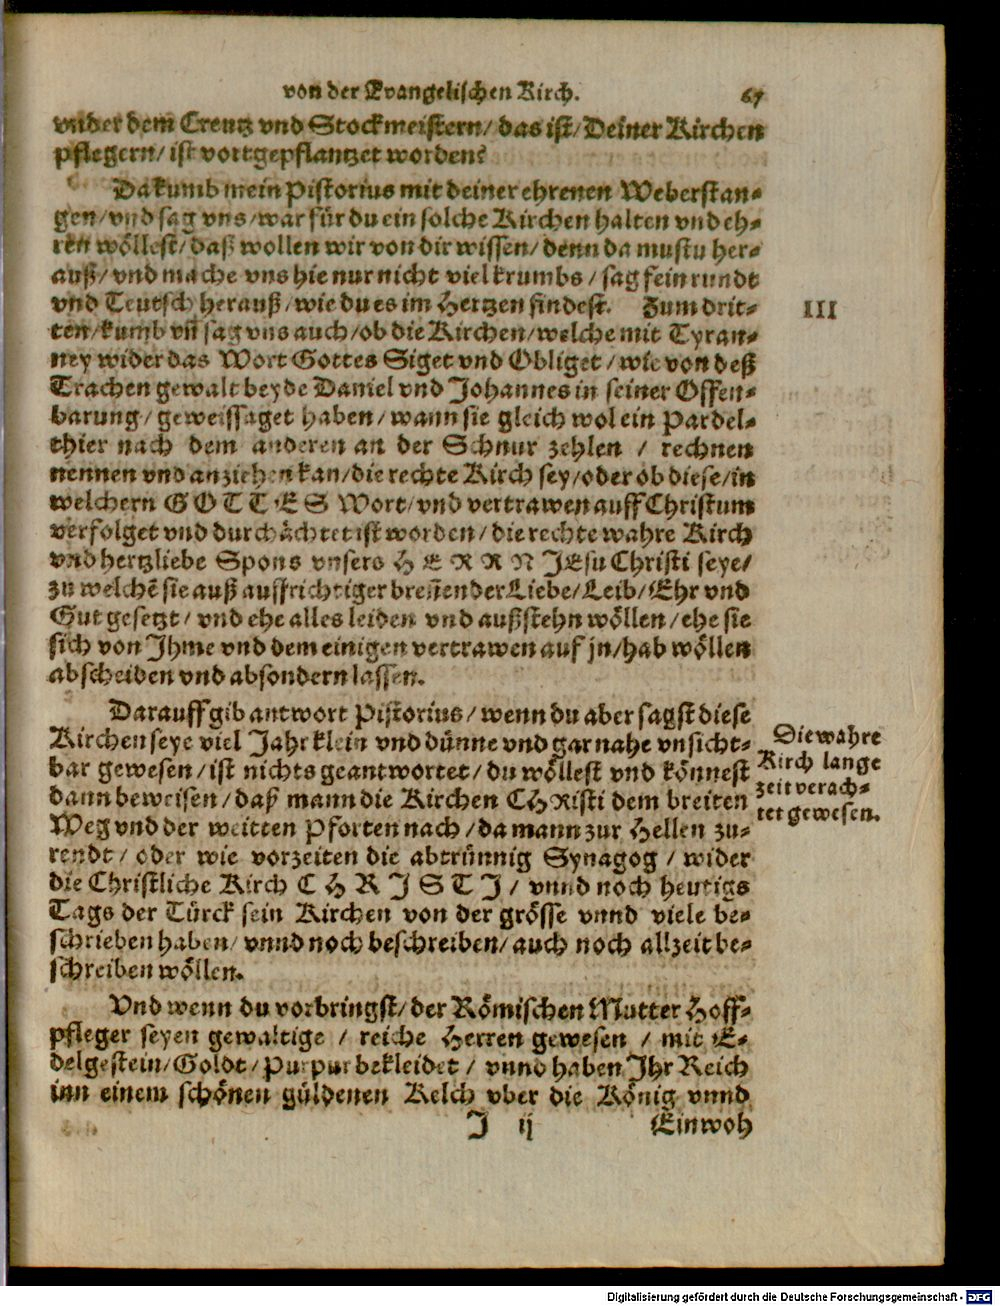 von der Evangelischen Kirch. 67
vnder dem Creutz vnd Stockmeistern/ das ist/ Deiner Kirchen
pflegern/ ist vortgepflantzet worden?
Da kumb mein Pistorius mit deiner ehrenen Weberstan-
gen/ vnd sag vns/ war für du ein solche Kirchen halten vnd eh-
ren wöllest/ daß wollen wir von dir wissen/ denn da mustu her-
auß/ vnd mache vns hie nur nicht viel krumbs/ sag fein rundt
vnd Teutsch herauß/ wie du es im Hertzen findest. Zum drit-
III
ten/ kumb vñ sag vns auch/ ob die Kirchen/ welche mit Tyran-
ney wider das Wort Gottes Siget vnd Obliget/ wie von deß
Trachen gewalt beyde Daniel vnd Johannes in seiner Offen-
barung/ geweissaget haben/ wann sie gleich wol ein Pardel-
thier nach dem anderen an der Schnur zehlen / rechnen
nennen vnd anziehen kan/ die rechte Kirch sey/ oder ob diese/ in
welchern GOTTES Wort/ vnd vertrawen auff Christum
verfolget vnd durchächtet ist worden/ die rechte wahre Kirch
vnd hertzliebe Spons vnsers HERRN JEsu Christi seye/
zu welchẽ sie auß auffrichtiger breñender Liebe/ Leib/ Ehr vnd
Gut gesetzt/ vnd ehe alles leiden vnd außstehn wöllen/ ehe sie
sich von Jhme vnd dem einigen vertrawen auf jn/ hab wöllen
abscheiden vnd absondern lassen.
Darauff gib antwort Pistorius/ wenn du aber sagst diese
Kirchen seye viel Jahr klein vnd dünne vnd gar nahe vnsicht-
bar gewesen/ ist nichts geantwortet/ du wöllest vnd könnest
dann beweisen/ daß mann die Kirchen CHRisti dem breiten
Weg vnd der weitten Pforten nach/ da mann zur Hellen zu-
rendt/ oder wie vorzeiten die abtrünnig Synagog / wider
die Christliche Kirch CHRJSTJ/ vnnd noch heutigs
Tags der Türck sein Kirchen von der grösse vnnd viele be-
schrieben haben/ vnnd noch beschreiben/ auch noch allzeit be-
schreiben wöllen.
Die wahre
Kirch lange
zeit verach-
tet gewesen.
Vnd wenn du vorbringst/ der Römischen Mutter Hoff-
pfleger seyen gewaltige / reiche Herren gewesen / mit E-
delgestein/ Goldt/ Purpur bekleidet / vnnd haben Jhr Reich
inn einem schönen güldenen Kelch vber die König vnnd
J ij Einwoh
Digitalisierung gefördert durch die Deutsche Forschungsgemeinschaft - DFG